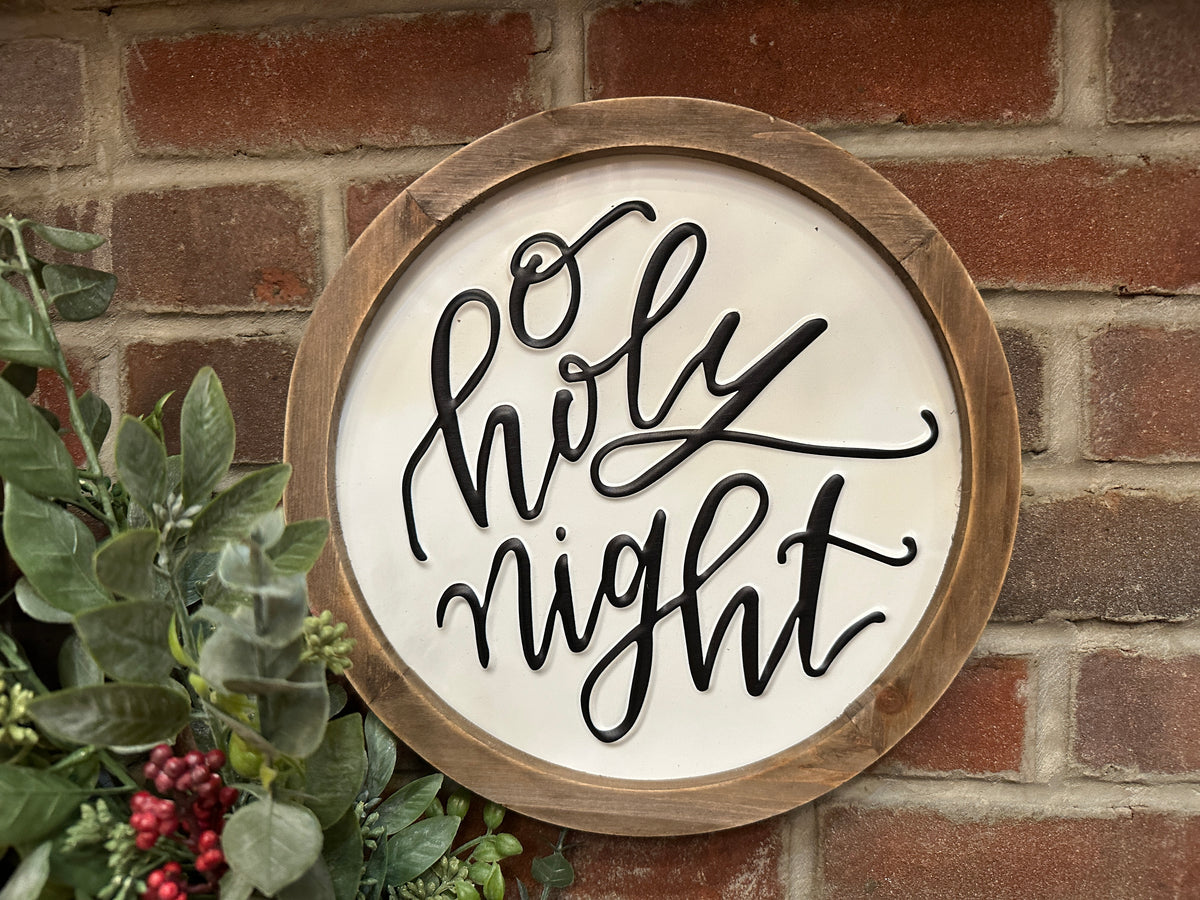 o
holy
night